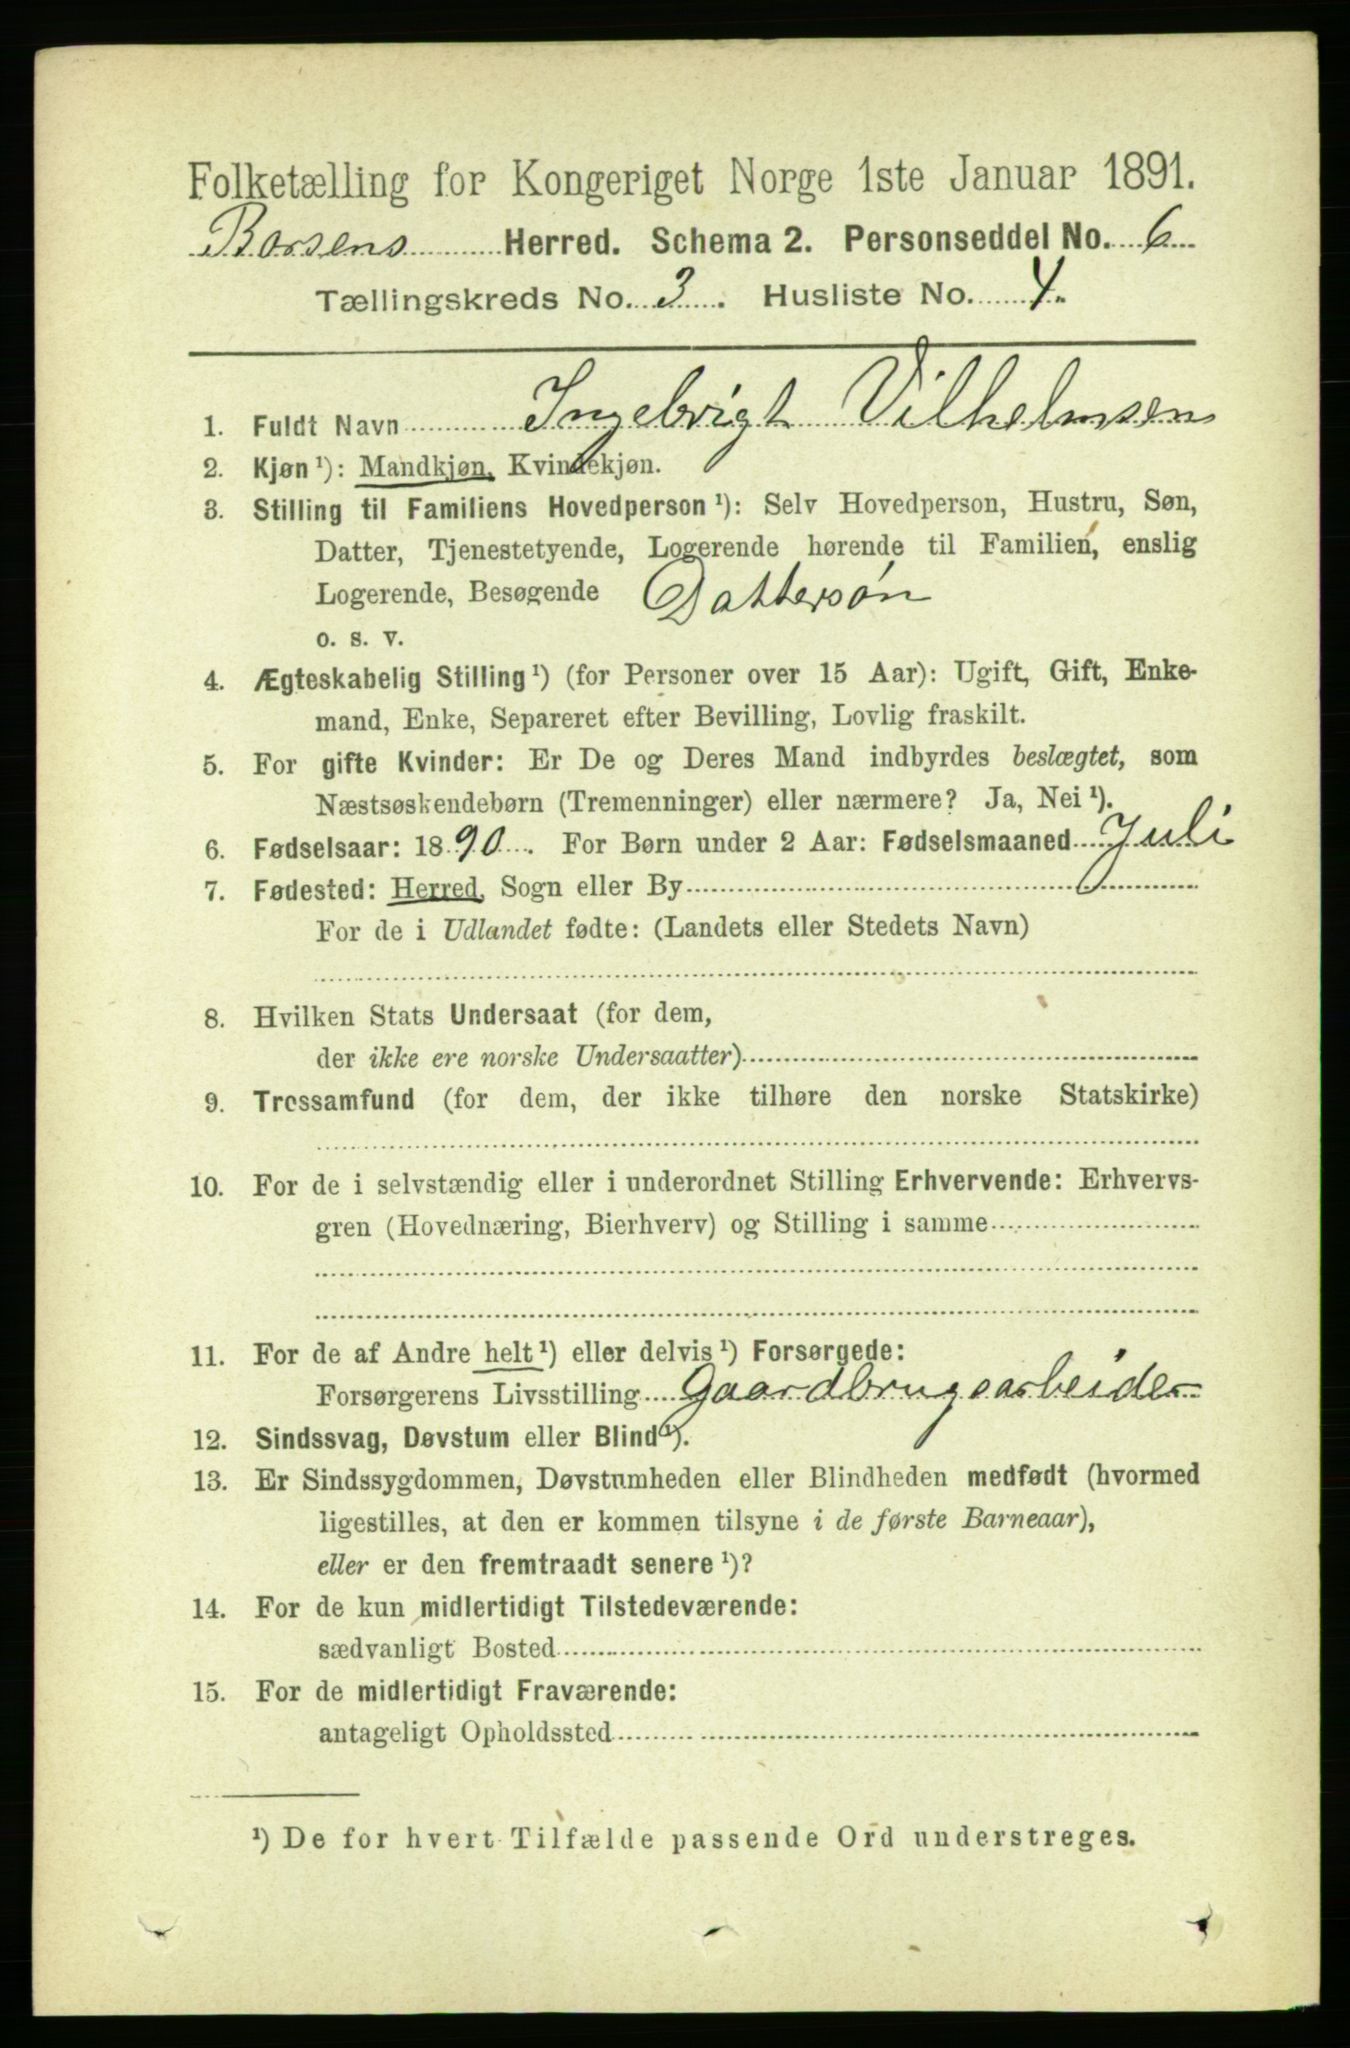 Folketælling for Kongeriget Norge 1ste Januar 1891.
Børsens Herred. Schema 2. Personseddel No. 6
Tællingskreds No. 3. Husliste No. 4.
1. Fuldt Navn Ingebrigt Vilhelmsen
2. Kjøn ¹): Mandkjøn, Kvindekjøn.
3. Stilling til Familiens Hovedperson ¹): Selv Hovedperson, Hustru, Søn,
Datter, Tjenestetyende, Logerende hørende til Familien, enslig
Logerende, Besøgende Dattersøn
o. s. v.
4. Ægteskabelig Stilling ¹) (for Personer over 15 Aar): Ugift, Gift, Enke-
mand, Enke, Separeret efter Bevilling, Lovlig fraskilt.
5. For gifte Kvinder: Er De og Deres Mand indbyrdes beslægtet, som
Næstsøskendebørn (Tremenninger) eller nærmere? Ja, Nei ¹).
6. Fødselsaar: 1890. For Børn under 2 Aar: Fødselsmaaned Juli
7. Fødested: Herred, Sogn eller By
For de i Udlandet fødte: (Landets eller Stedets Navn)
8. Hvilken Stats Undersaat (for dem,
der ikke ere norske Undersaatter)
9. Trossamfund (for dem, der ikke tilhøre den norske Statskirke)
10. For de i selvstændig eller i underordnet Stilling Erhvervende: Erhvervs-
gren (Hovednæring, Bierhverv) og Stilling i samme
11. For de af Andre helt ¹) eller delvis ¹) Forsørgede:
Forsørgerens Livsstilling Gaardbrugsarbeider
12. Sindssvag, Døvstum eller Blind ¹).
13. Er Sindssygdommen, Døvstumheden eller Blindheden medfødt (hvormed
ligestilles, at den er kommen tilsyne i de første Barneaar),
eller er den fremtraadt senere ¹)?
14. For de kun midlertidigt Tilstedeværende:
sædvanligt Bosted
15. For de midlertidigt Fraværende:
antageligt Opholdssted
¹) De for hvert Tilfælde passende Ord understreges.